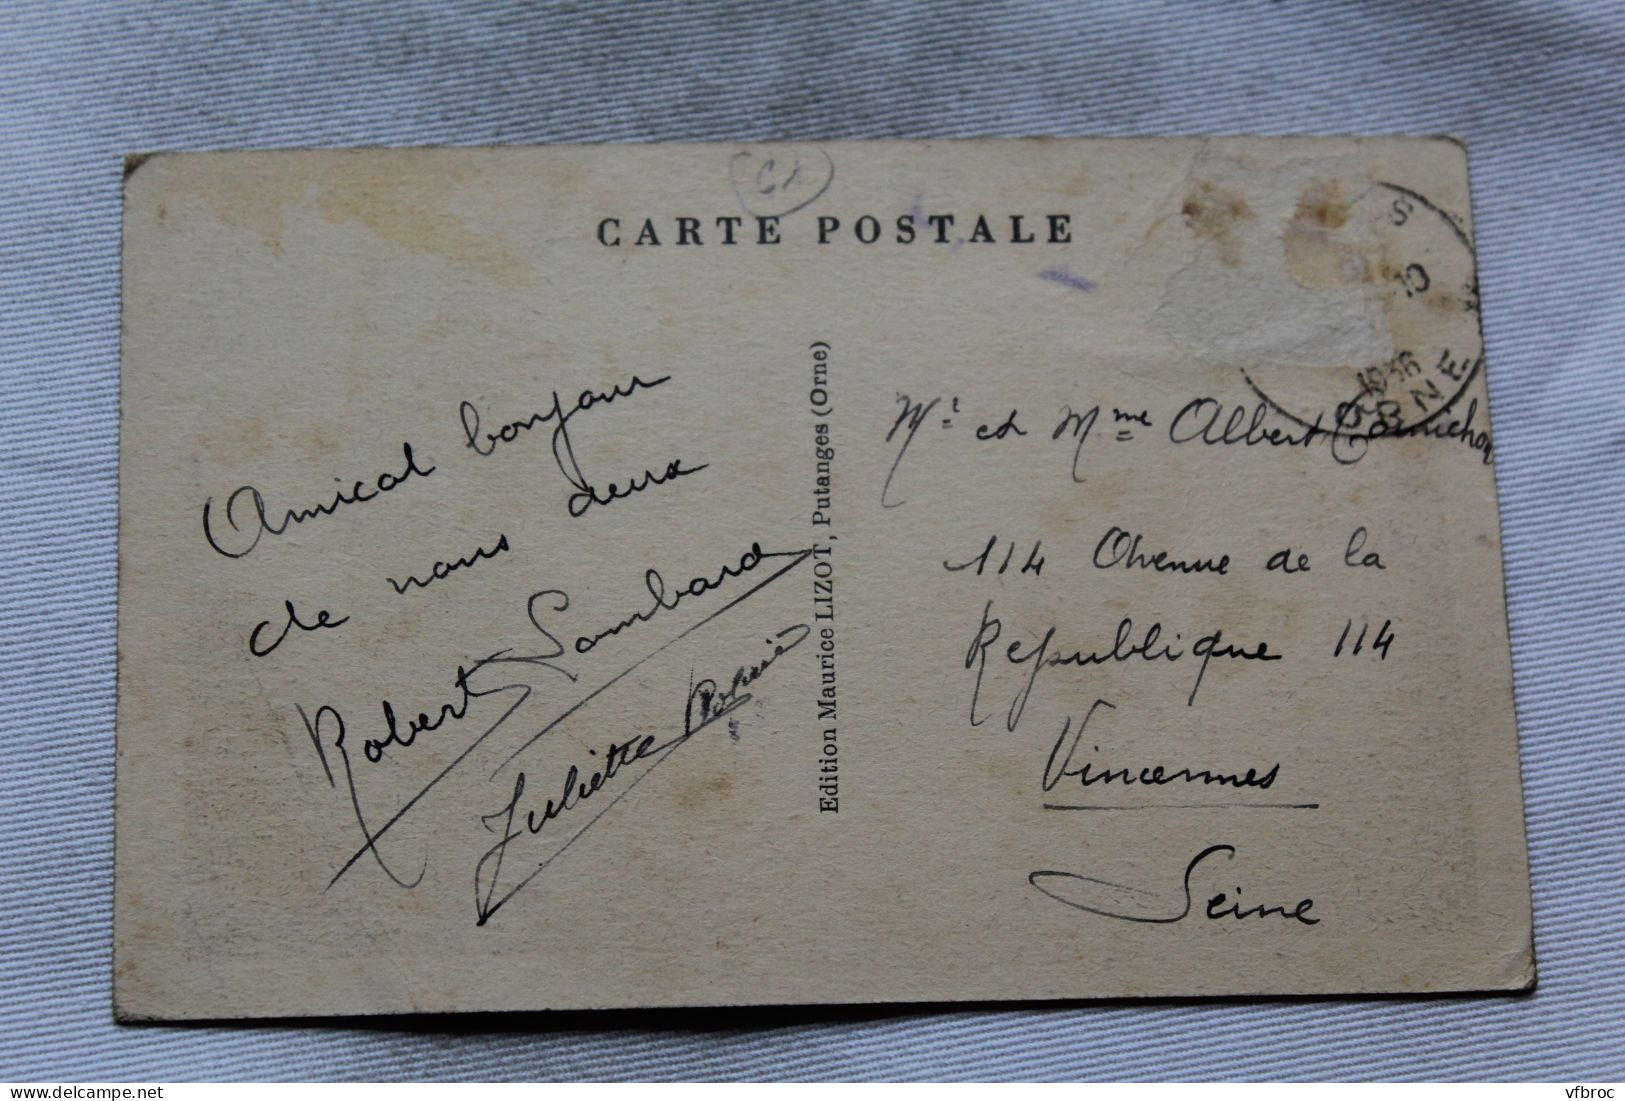 CARTE POSTALE
Amical bonjour
de nous deux
Robert Lombard
Juliette
Edition Maurice LIZOT, Putanges (Orne)
S
10
1936
ORNE
Mr et Mme Albert Cornichon
114 Avenue de la
Republique 114
Vincennes
Seine
vfbroc